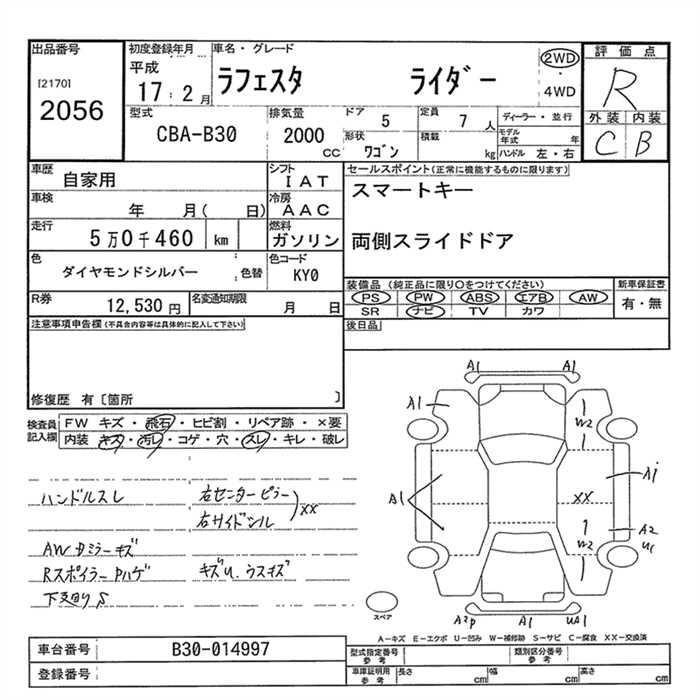 出品番号
[2170]
2056
初度登録年月
平成
17:2月
車名・グレード
ラフェスタ ライダー
2WD
・
4WD
評価点
R
外装 内装
C B
型式
CBA-B30
排気量
2000
CC
ドア 5
形状 ワゴン
定員 7 人
積載 kg
ディーラー・並行
モデル年式 年
ハンドル 左・右
車歴 自家用
シフト IAT
車検 年 月( 日)
冷房 AAC
走行 5万0千460 km
燃料 ガソリン
色 ダイヤモンドシルバー : : 色替
色コード KY0
R券 12,530円
名変通知期限 月 日
セールスポイント(正常に機能するものに限ります)
スマートキー
両側スライドドア
装備品(純正品に限り〇をつけてください)
PS PW ABS エアB AW
SR ナビ TV カワ
新車保証書
有・無
後日品
注意事項申告欄(不具合内容等は具体的に記入して下さい)
修復歴 有〔箇所 〕
検査員記入欄
FW キズ・飛石・ヒビ割・リペア跡・×要
内装 キズ・汚レ・コゲ・穴・スレ・キレ・破レ
ハンドルスレ
右センターピラー
右サイドシル
)XX
AW タミラーキズ
Rスポイラー Pハゲ キズU. ウスキズ
下廻り S
A1 A1
A1
W2
A1
A1
XX
A2
U1
W2
A2P A1 UA1
スペア
A―キズ E―エクボ U―凹み W―補修跡 S―サビ C―腐食 XX―交換済
車台番号 B30-014997
登録番号
型式指定番号 参考
類別区分番号 参考
車庫証明用 参考
長さ cm 幅 cm 高さ cm